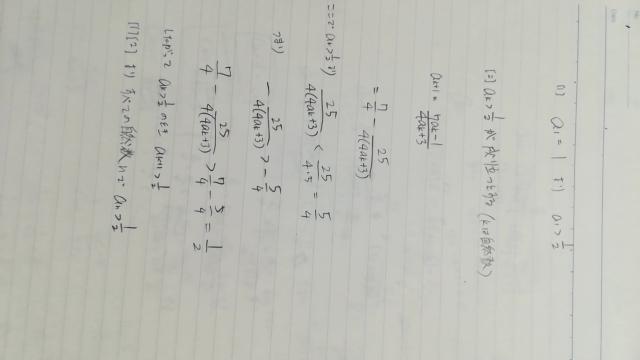 [1] a₁ = 1 より a₁ > 1/2
[2] aₖ > 1/2 が成り立つとする (kは自然数)
aₖ₊₁ = (7aₖ-1)/(4aₖ+3)
= 7/4 - 25/(4(4aₖ+3))
ここで aₖ > 1/2 より
25/(4(4aₖ+3)) < 25/(4・5) = 5/4
つまり
- 25/(4(4aₖ+3)) > - 5/4
7/4 - 25/(4(4aₖ+3)) > 7/4 - 5/4 = 1/2
したがって aₖ > 1/2 のとき aₖ₊₁ > 1/2
[1][2] より すべての自然数 n で aₙ > 1/2